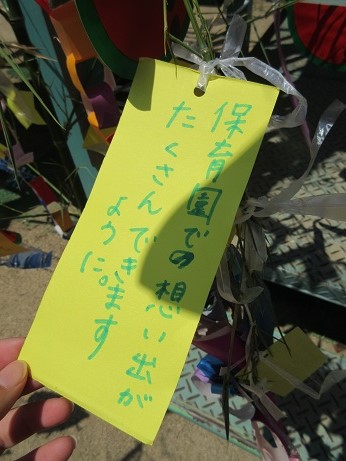 保育園での想い出が
たくさんできます
ように。